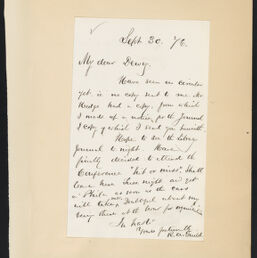 Sept 30. '76.
My dear Dewey,
Have seen no circular
yet, is no copy sent to me Mr.
Hedge had a copy, from which
I made up a notice, for the Journal
a copy of which I send you herewith
Hope to see the Library
Journal to night. Have
finally decided to attend the
Conference "hit or miss". Shall
leave here Tues night and get
to Phila. as soon as the cars
will take me.
In haste
Yours fraternally
R. A. Guild